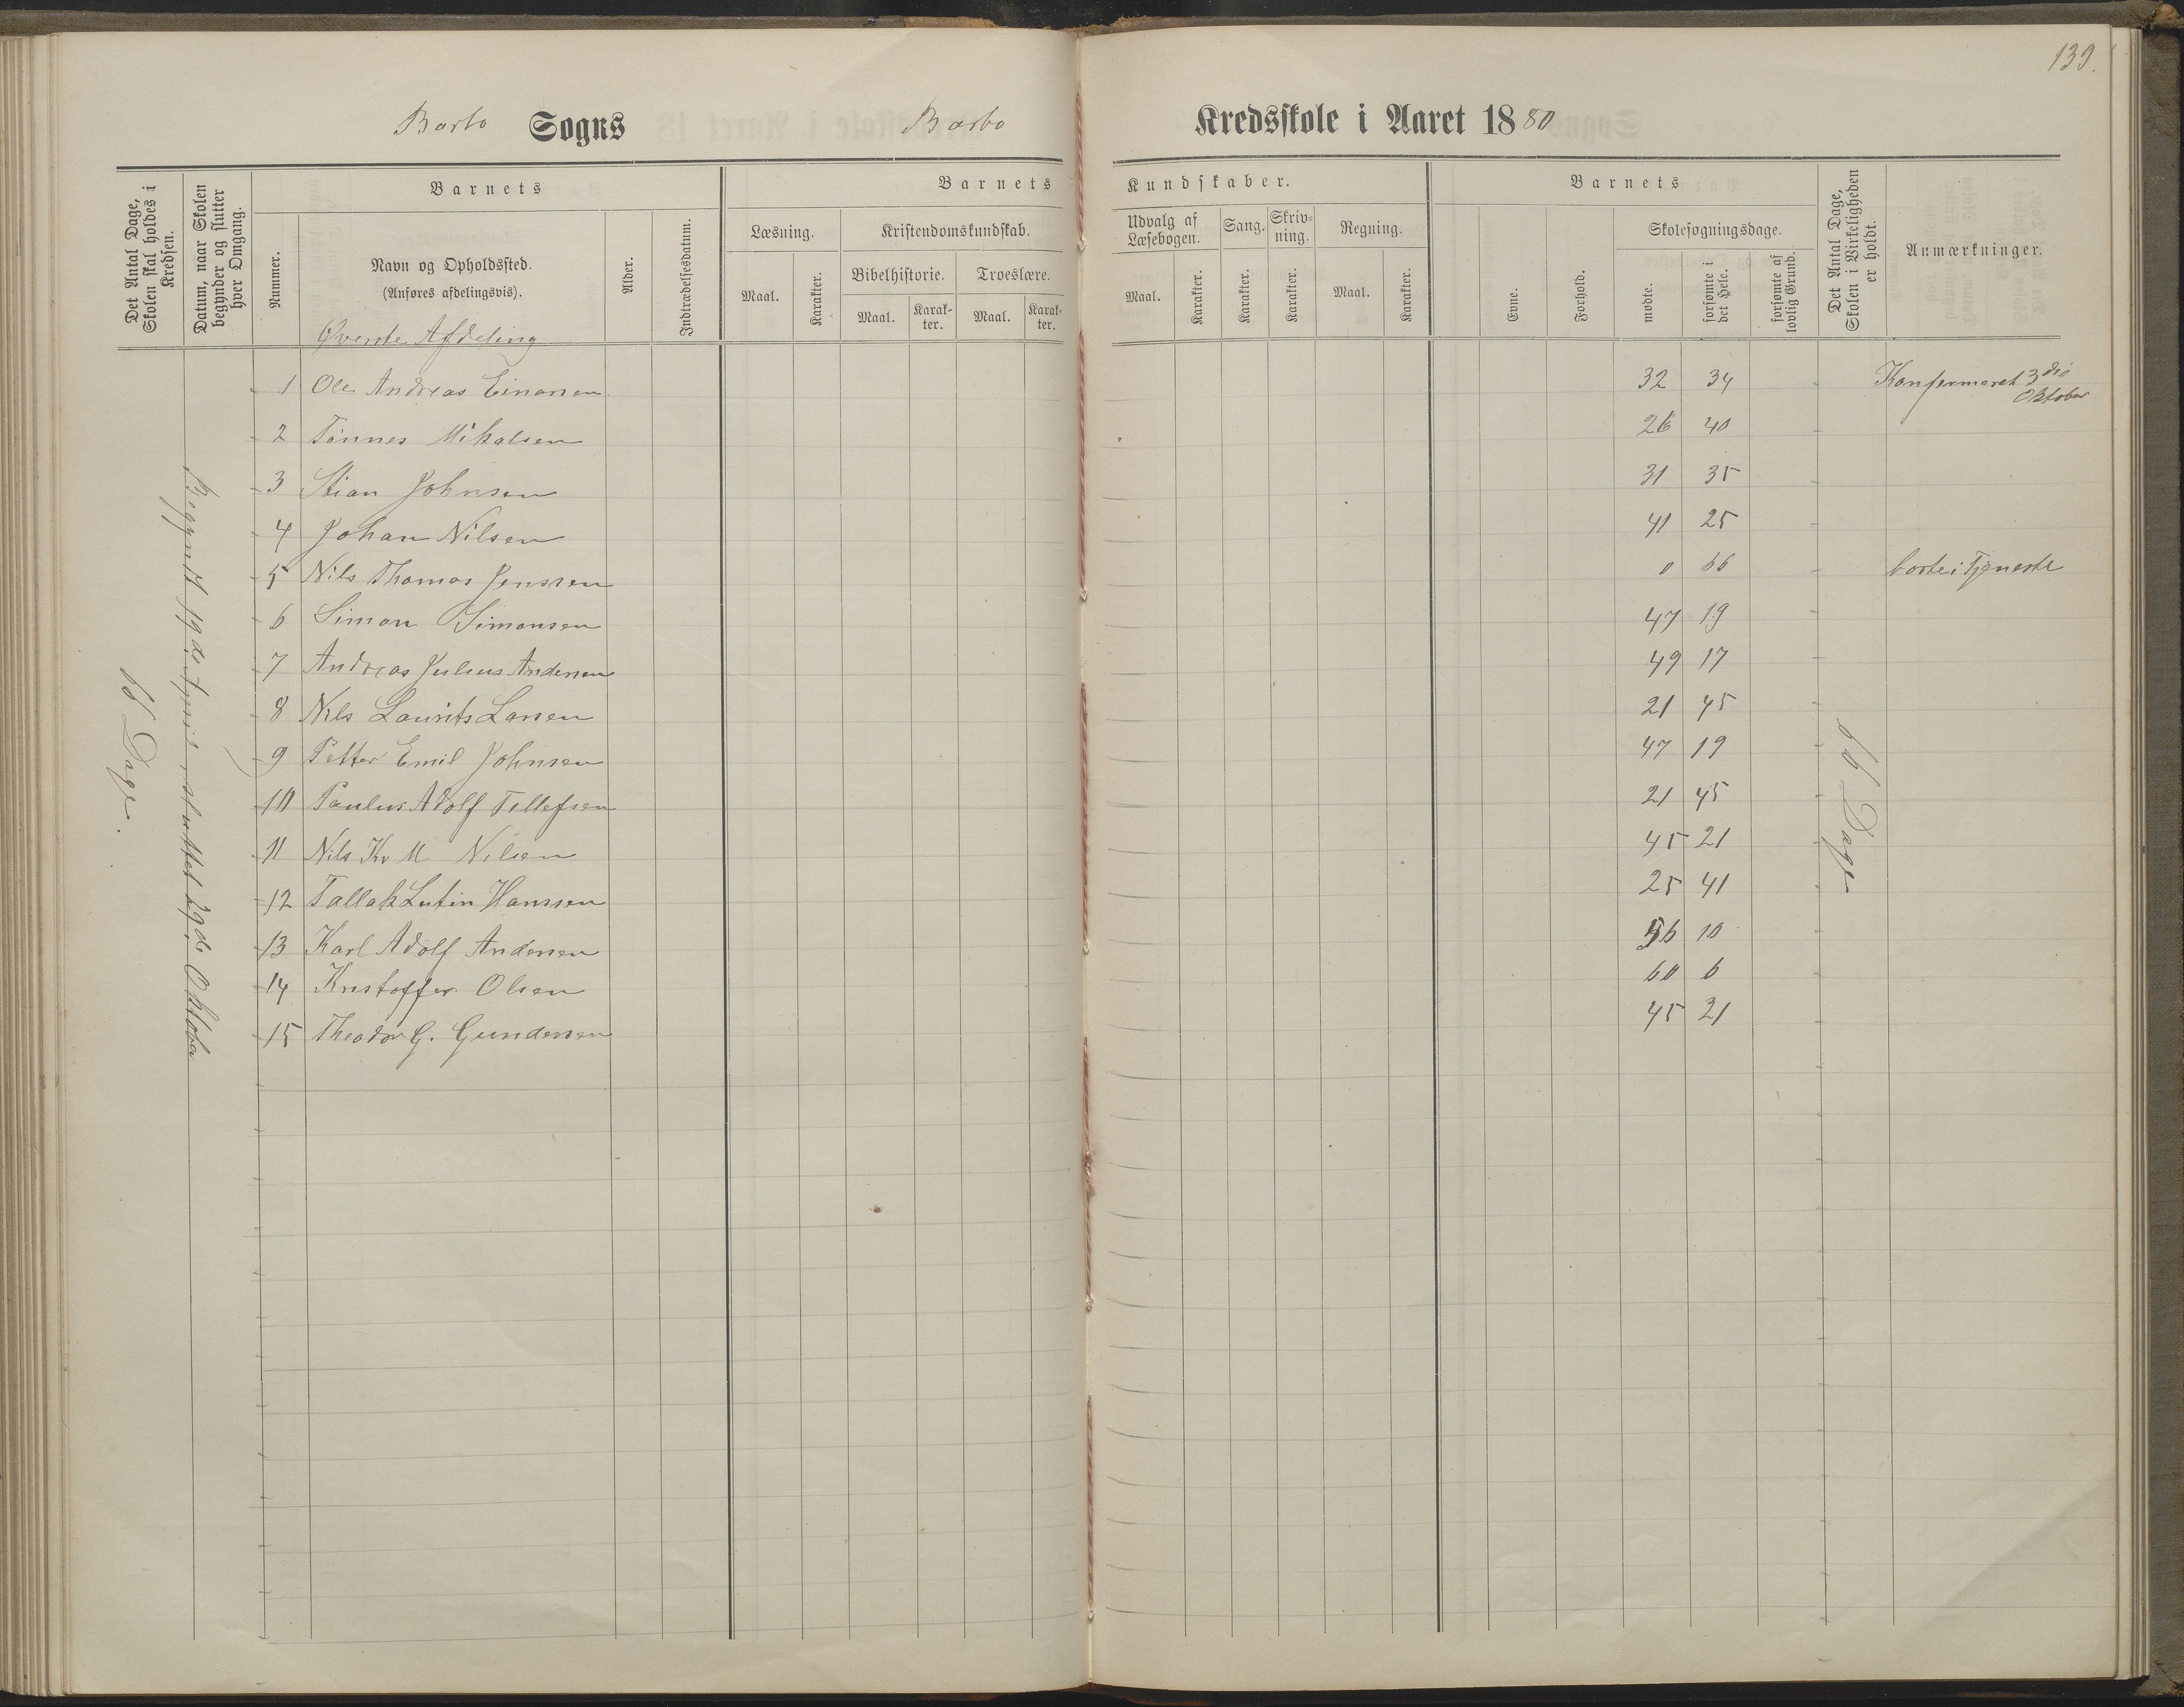 139.
Barbo Sogns Barbo Kredsskole i Aaret 1880
Det Antal Dage, Skolen skal holdes i Kredsen.
Datum, naar Skolen begynder og slutter hver Omgang.
Nummer.
Barnets
Navn og Opholdssted.
(Anføres afdelingsvis).
Øverste Afdeling
Alder.
Indtrædelsesdatum.
Barnets Kundskaber.
Læsning.
Maal.
Karakter.
Kristendomskundskab.
Bibelhistorie.
Maal.
Karakter.
Troeslære.
Maal.
Karakter.
Udvalg af Læsebogen.
Maal.
Karakter.
Sang.
Karakter.
Skrivning.
Karakter.
Regning.
Maal.
Karakter.
Barnets
Evne.
Forhold.
Skolesøgningsdage.
mødte.
forsømte i det Hele.
forsømte af lovlig Grund.
Det Antal Dage, Skolen i Virkeligheden er holdt.
Anmærkninger.
66 Dage.
Begyndt 19de April sluttet 29de Oktober
1 Ole Andreas Einarsen 32 34 Konfirmeret 3die Oktober
2 Tønnes Mikalsen 26 40
3 Stian Johnsen 31 35
4 Johan Nilsen 41 25
5 Nils Thomas Jenssen 0 66 borte i Tjeneste
6 Simon Simonsen 47 19
7 Andreas Julius Andersen 49 17
8 Nils Laurits Larsen 21 45
9 Petter Emil Johnsen 47 19
10 Paulus Adolf Tellefsen 21 45
11 Nils Kr M Nilsen 45 21
12 Tallak Hanssen 25 41
13 Karl Adolf Andersen 56 10
14 Kristoffer Olsen 60 6
15 Theodor G. Gundersen 45 21
66 Dage